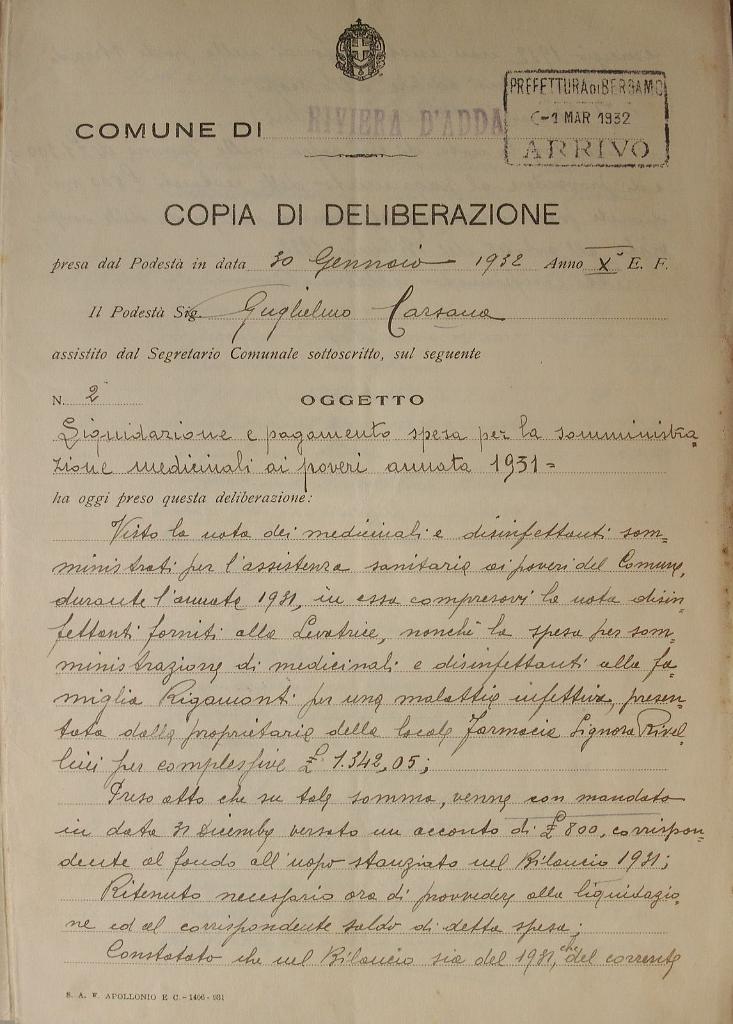 COMUNE DI RIVIERA D'ADDA
PREFETTURA DI BERGAMO
-1 MAR 1932
ARRIVO
COPIA DI DELIBERAZIONE
presa dal Podestà in data 30 Gennaio 1932 Anno X° E. F.
Il Podestà Sig. Guglielmo Carsana
assistito dal Segretario Comunale sottoscritto, sul seguente
N. 2 OGGETTO
Liquidazione e pagamento spesa per la somministra=
zione medicinali ai poveri annata 1931=
ha oggi preso questa deliberazione:
Visto la nota dei medicinali e disinfettanti som=
ministrati per l'assistenza sanitaria ai poveri del Comune,
durante l'annata 1931, in essa compresovi la nota disin=
fettanti forniti alla Levatrice, nonchè la spesa per som=
ministrazione di medicinali e disinfettanti alla fa=
miglia Rigamonti per una malattia infettiva, presen=
tata dalla proprietaria della locale Farmacia Signora
per complessive £ 1.342,05;
Preso atto che su tale somma, venne con mandato
in data 31 Dicembre versato un acconto di £ 800, corrispon=
dente al fondo all'uopo stanziato nel Bilancio 1931;
Ritenuto necessario ora di provvedere alla liquidazio=
ne ed al corrispondente saldo di detta spesa;
Constatato che nel Bilancio sia del 1931, che del corrente
S. A. F. APOLLONIO E C. - 1406 - 931